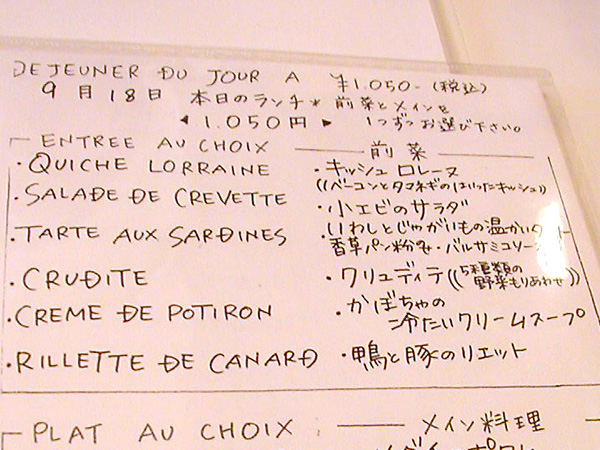 DEJEUNER DU JOUR A ¥1.050-(税込)
9月18日 本日のランチ* 前菜とメインを
◀ 1.050円 ▶ 1つずつお選び下さい。
ENTREE AU CHOIX 前菜
・QUICHE LORRAINE ・キッシュ ロレーヌ
((ベーコンとタマネギのはいったキッシュ))
・SALADE DE CREVETTE ・小エビのサラダ
・TARTE AUX SARDINES ・いわしとじゃがいもの温かい
香草パン粉 ・バルサミコソース
・CRUDITE ・クリュディテ((5種類の
野菜もりあわせ))
・CREME DE POTIRON ・かぼちゃの
冷たいクリームスープ
・RILLETTE DE CANARD ・鴨と豚のリエット
PLAT AU CHOIX メイン料理